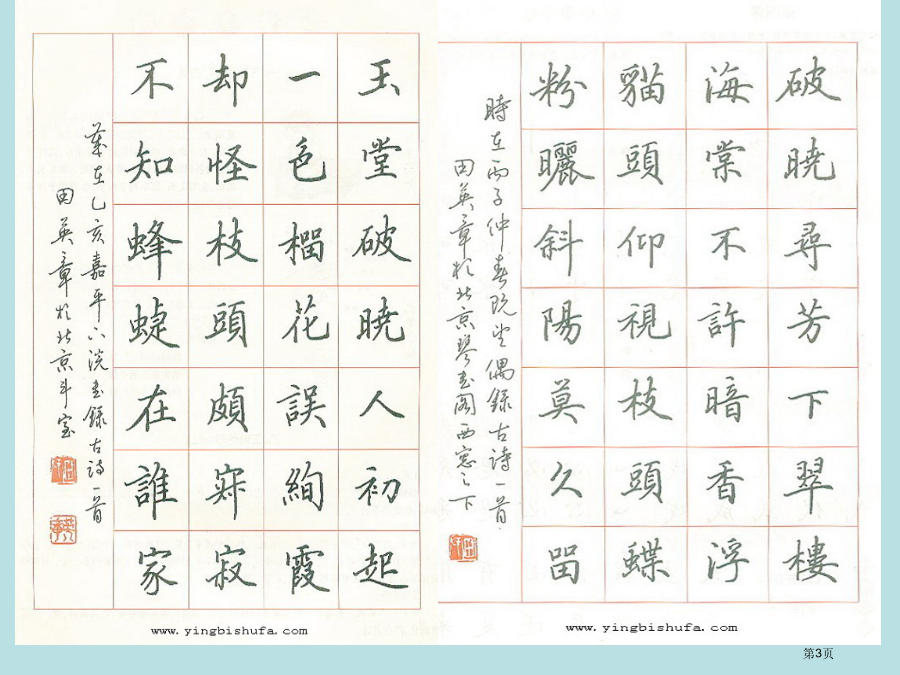 玉堂破曉人初起
一色榴花誤絢霞
却怪枝頭頗寂寂
不知蜂蜨在誰家
歲在乙亥嘉平下浣書錄古詩一首
田英章於北京斗室
www.yingbishufa.com
破曉尋芳下翠樓
海棠不許暗香浮
貓頭仰視枝頭蝶
粉曬斜陽莫久留
時在丙子仲春既望偶錄古詩一首
田英章於北京琴書閣西窓之下
www.yingbishufa.com
第3页